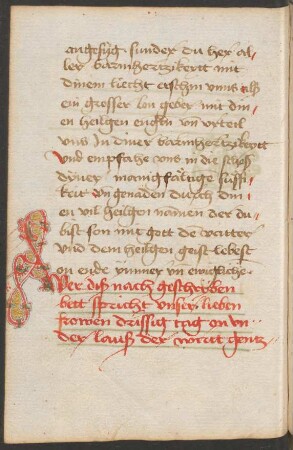 angesúg sunder du her al
ler barmhertzikeit mit
dinem liecht erschin vnns als
ein grosser lon geber mit din
en heilgen engln vn vrteil
vns In diner barmhertzikeit
Vnd empfache vns in die schoß
diner manigfaltige sússi
keit vn genaden durch din
en vil heilgen namen der du
bist son mit gott de vatter
vnd dem heilgen geist lebest
on ende ymmer vn ewigkliche
Wer diß nach geschriben
bett spricht vnser lieben
frowen drissig tag on vn
der lauß der wirt gentz